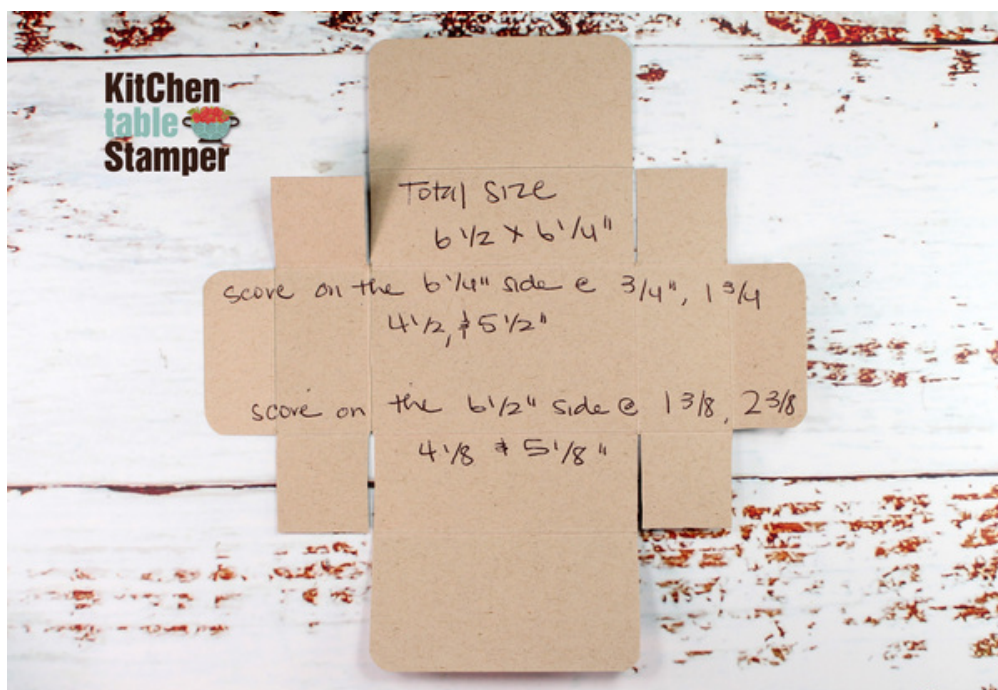 KitChen
table
Stamper
Total Size
6 1/2 x 6 1/4"
score on the 6 1/4" side @ 3/4", 1 3/4
4 1/2, & 5 1/2"
score on the 6 1/2" side @ 1 3/8, 2 3/8
4 1/8 & 5 1/8"